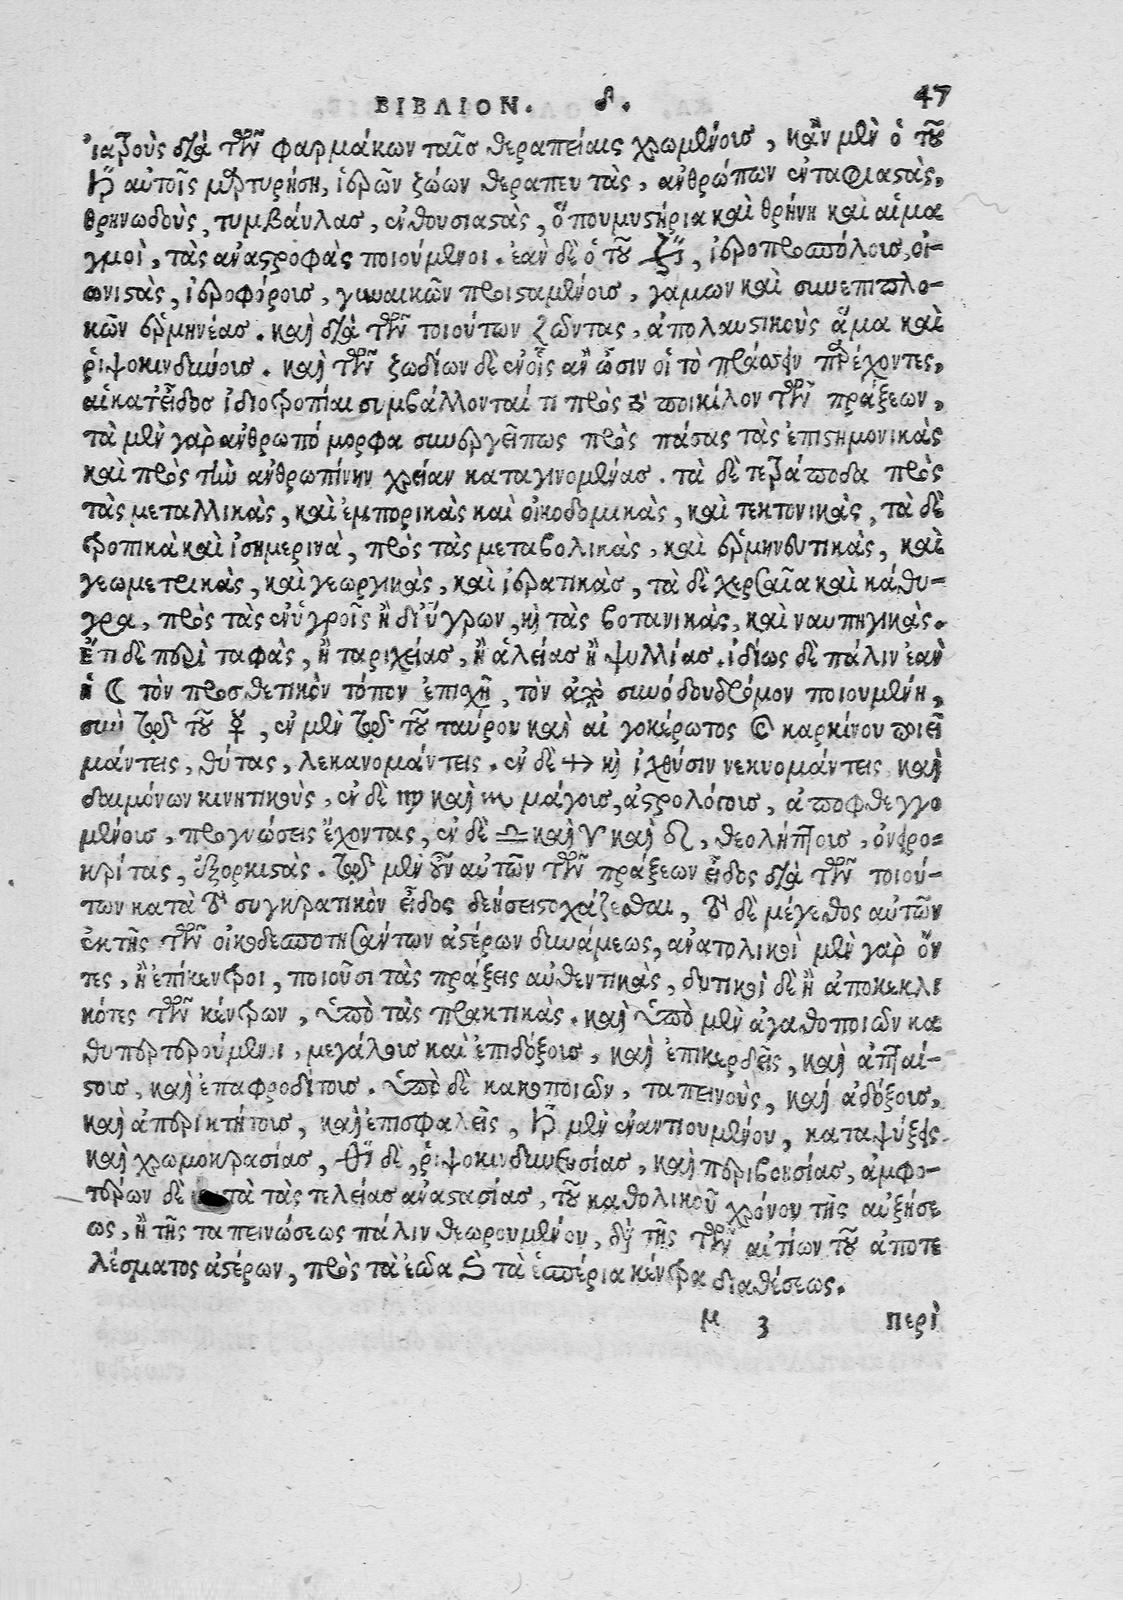 ΒΙΒΛΙΟΝ. δ. 47
ἰατροὺς διὰ τῶν φαρμάκων ταῖς θεραπείαις χρωμένοις, κἂν μὲν ὁ τοῦ
♄ αὐτοῖς μαρτυρήσῃ, ἱερῶν ζώων θεραπευτὰς, ἀνθρώπων ἐνταφιαστὰς,
θρηνωδοὺς, τυμβαύλας, ἐνθουσιαστὰς, ὅπου μυστήρια καὶ θρήνη καὶ αἱμα
γμοὶ, τὰς ἀναστροφὰς ποιούμενοι. ἐὰν δὲ ὁ τοῦ ♃, ἱεροπροσπόλοις, οἰ-
ωνιστὰς, ἱεροφόροις, γυναικῶν προισταμένοις, γάμων καὶ συνεπιπλο-
κῶν ἑρμηνέας. καὶ διὰ τῶν τοιούτων ζῶντας, ἀπολαυστικοὺς ἅμα καὶ
ῥιψοκινδύνοις. καὶ τῶν ζωδίων δὲ ἐν οἷς ἂν ὦσιν οἱ τὸ πράσσειν παρέχοντες,
αἱ κατ' εἶδος ἰδιοτροπίαι συμβάλλονταί τι πρὸς τὸ ποικίλον τῶν πράξεων,
τὰ μὲν γὰρ ἀνθρωπόμορφα συνεργεῖ πως πρὸς πάσας τὰς ἐπιστημονικὰς
καὶ πρὸς τὴν ἀνθρωπίνην χρείαν καταγινομένας. τὰ δὲ τετράποδα πρὸς
τὰς μεταλλικὰς, καὶ ἐμπορικὰς καὶ οἰκοδομικὰς, καὶ τεκτονικὰς, τὰ δὲ
τροπικὰ καὶ ἰσημερινὰ, πρὸς τὰς μεταβολικὰς, καὶ ἑρμηνευτικὰς, καὶ
γεωμετρικὰς, καὶ γεωργικὰς, καὶ ἱερατικὰς, τὰ δὲ χερσαῖα καὶ κάθυ-
γρα, πρὸς τὰς ἐν ὑγροῖς ἢ δι' ὑγρῶν, καὶ τὰς βοτανικὰς, καὶ ναυπηγικὰς.
ἔτι δὲ περὶ ταφὰς, ἢ ταριχείας, ἢ ἁλείας ἢ ψυλλίας. ἰδίως δὲ πάλιν ἐὰν
ἡ ☾ τὸν προσθετικὸν τόπον ἐπιχῇ, τὸν ἀπὸ συνόδου δρόμον ποιουμένη,
σὺν τῷ τοῦ ☿, ἐν μὲν τῷ τοῦ ταύρου καὶ αἰγοκέρωτος καὶ καρκίνου ποιεῖ
μάντεις, θύτας, λεκανομάντεις. ἐν δὲ ♐ καὶ ἰχθύσιν νεκυομάντεις καὶ
δαιμόνων κινητικοὺς, ἐν δὲ ♍ καὶ ♏ μάγοις, ἀστρολόγοις, ἀποφθεγγο
μένοις, προγνώσεις ἔχοντας, ἐν δὲ ♎ καὶ ♈ καὶ ♌, θεολήπτοις, ὀνειρο-
κρίτας, ἐξορκιστὰς. τὸ μὲν οὖν αὐτῶν τῶν πράξεων εἶδος διὰ τῶν τοιού-
των κατὰ τὸ συγκρατικὸν εἶδος δεήσει στοχάζεσθαι, τὸ δὲ μέγεθος αὐτῶν
ἐκ τῆς τῶν οἰκοδεσποτησάντων ἀστέρων δυνάμεως, ἀνατολικοὶ μὲν γὰρ ὄν
τες, ἢ ἐπίκεντροι, ποιοῦσι τὰς πράξεις αὐθεντικὰς, δυτικοὶ δὲ ἢ ἀποκεκλι
κότες τῶν κέντρων, ὑπὸ τὰς πρακτικὰς. καὶ ὑπὸ μὲν ἀγαθοποιῶν κα
θυπερτερούμενοι, μεγάλοις καὶ ἐπιδόξοις, καὶ ἐπικερδεῖς, καὶ ἀπταί-
στοις, καὶ ἐπαφροδίτοις. ὑπὸ δὲ κακοποιῶν, ταπεινοὺς, καὶ ἀδόξοις,
καὶ ἀπερικτήτοις, καὶ ἐπισφαλεῖς, ♄ μὲν ἐναντιουμένου, καταψύξεις
καὶ χρωμοκρασίας, ♂ δὲ, ῥιψοκινδυνευσίας, καὶ περιβοησίας, ἀμφο-
τέρων δὲ τὰ τὰς τελείας ἀναστασίας, τοῦ καθολικοῦ χρόνου τῆς αὐξήσε
ως, ἢ τῆς ταπεινώσεως πάλιν θεωρουμένου, διὰ τῆς τῶν αἰτίων τοῦ ἀποτε
λέσματος ἀστέρων, πρὸς τὰ ἑῶα καὶ τὰ ἑσπέρια κέντρα διαθέσεως.
Μ 3 περὶ